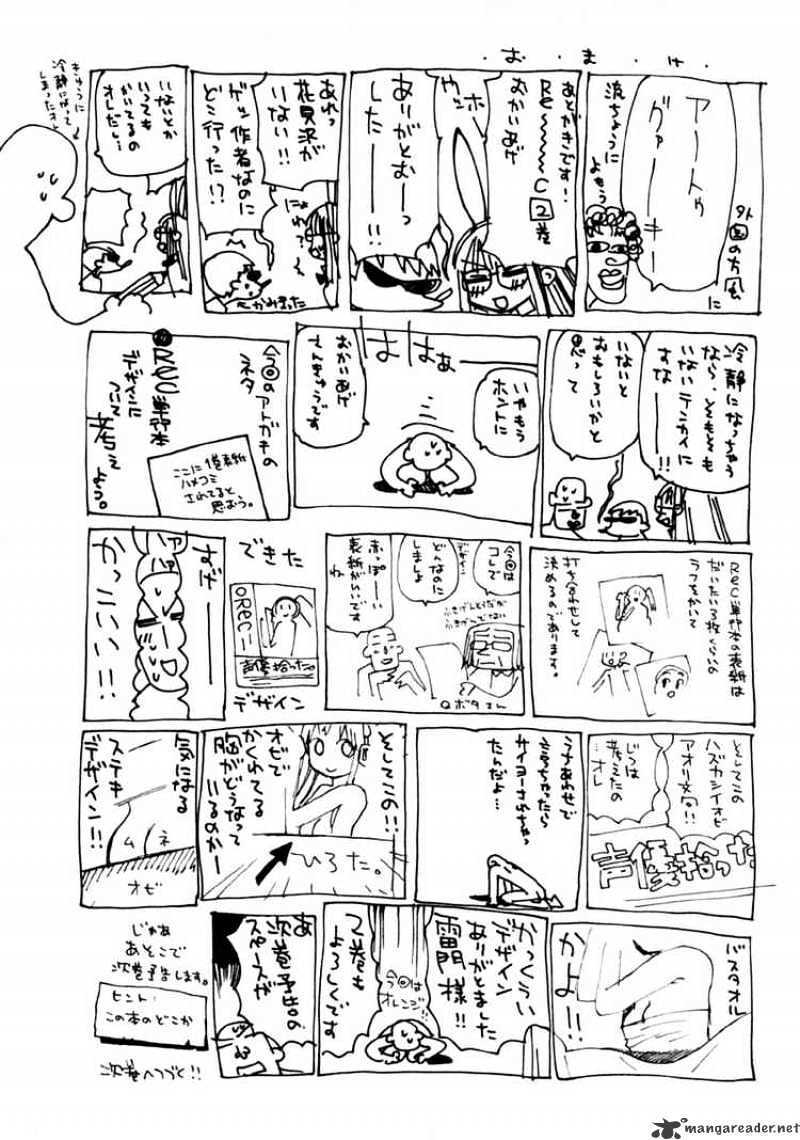 お・ま・け・
アートゥ
ヴァーキー
外国の方風に
読むように
よもう
あとがきです!
REC 2巻
おかいあげ
ホンヤッ
ありがとむーっ
したーー!!
あれっ
花見沢が
いない!!
ゲン作者なのに
どこ行った!?
にょわって
←かみきった
いないとか
いっても
かいてるの
オレだし…
きゅうに
冷静になって
しまったオレ
冷静になっちゃう
なら、そもそも
いないテンカイに
すなーー!
いないと
おもしろいかと
思って
いやもう
ホントに
はは
はぁー
おかいあげ
さんきゅうです
今回のアトガキの
ネタ
●REC単行本
デザインに
ついて
考え
よう。
ここに1巻表紙
ハメコミ
されてると
思おう。
REC単行本の表紙は
だいたい10枚くらいの
ラフをかいて
打ち合わせして
決めるのであります。
今回は
コレで
デザイン
どんなのに
しましょ
赤っぽーい
表紙がいいです
ね
ふきげんそうだが
ふきげんでない
Qボタさん
できた
○REC—
声優拾った。
デザイン
すげーー
かっこいい!!
そしてこの
ハズカシイオビ
アオリ文句!!
じつは
考えたの
オレ
声優拾った
うちあわせで
言っちゃったら
サイヨーされちゃっ
たんだよ…
そしてこの!!
オビで
かくれてる
胸がどうなって
いるのかー
ひろた。
気になる
ステキ
デザイン!!
ムネ
オビ
バスタオル
かよーー!
かっくうい
デザイン
ありがとました
雷門様!!
2巻も
よろしくです
今回は
オレンジ!!
あ
次巻予告の
スペースが
じゃあ
あそこで
次巻予告します。
ヒント:
この本のどこか
次巻へつづく!!
mangareader.net